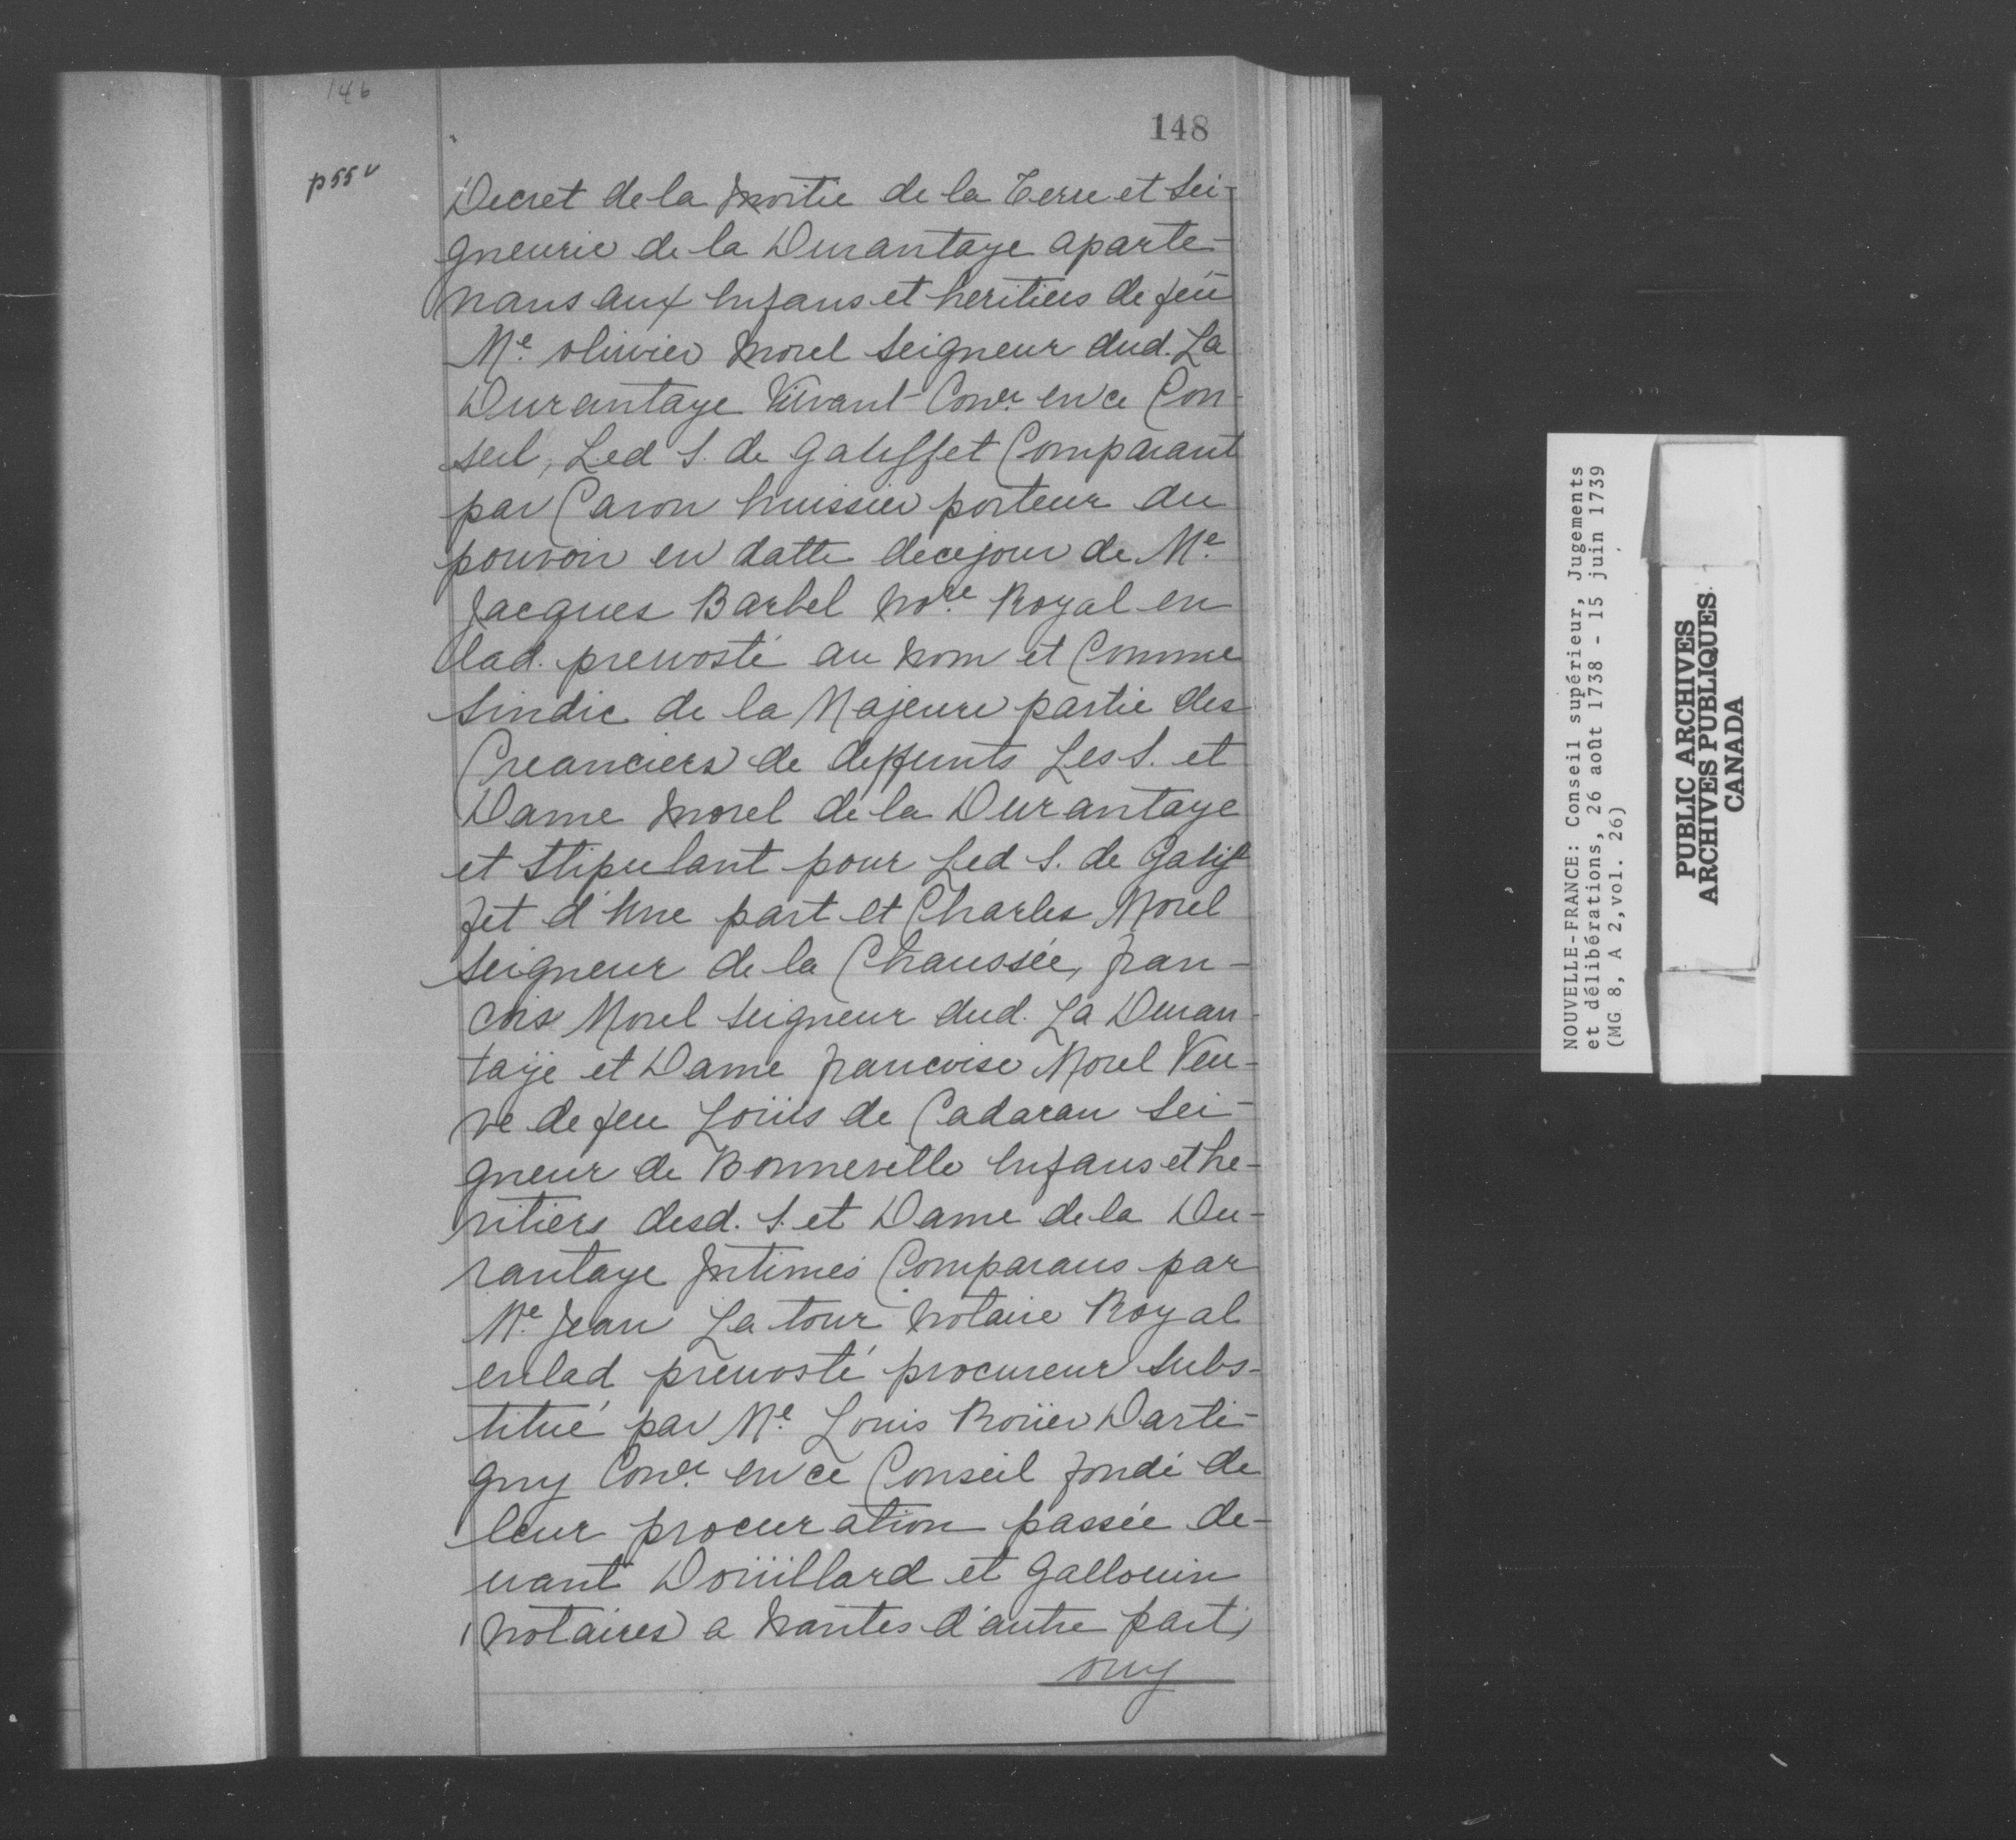 146
148
p 55 v
Decret de la Moitie de la Terre et Sei-
gneurie de la Durantaye aparte-
nans aux Enfans et heritiers de feu
Me. olivier Morel Seigneur dud. La
Durantaye Vivant Conver. en ce Con-
seil, Led S. de Galiffet Comparant
par Caron huissier porteur du
pouvoir en datte de ce jour de Me.
Jacques Barbel Nore. Royal en
lad. prevosté au nom et Comme
Sindic de la Majeure partie des
Creanciers de deffunts Les S. et
Dame Morel de la Durantaye
et Stipulant pour Led S. de Galif-
fet d'Une part et Charles Morel
Seigneur de la Chaussée, fran-
cois Morel Seigneur dud. La Duran-
taÿe et Dame francoise Morel Veu-
ve de feu Loüis de Cadaran Sei-
gneur de Bonneville Enfans et he-
ritiers desd. S. et Dame de la Du-
rantaye Intimés Comparans par
Me. Jean La tour Notaire Royal
en lad prevosté procureur Subs-
titué par Me. Louis Roüer Darti-
gny Conver. en ce Conseil fondé de
leur procuration passée de-
vant Doüillard et Gallouin
notaires a Nantes d'autre part,
ouy
NOUVELLE-FRANCE: Conseil supérieur, Jugements
et délibérations, 26 août 1738 - 15 juin 1739
(MG 8, A 2, vol. 26)
PUBLIC ARCHIVES
ARCHIVES PUBLIQUES
CANADA